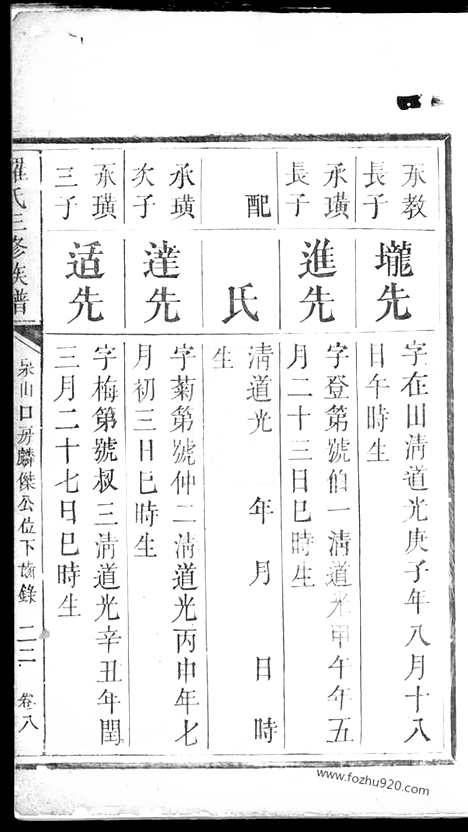 永教
長子
壠先
字在田清道光庚子年八月十八
日午時生
永璜
長子
進先
字登第號伯一清道光甲午年五
月二十三日巳時生
配
氏
清道光 年 月 日 時
生
永璜
次子
達先
字菊第號仲二清道光丙申年七
月初三日巳時生
永璜
三子
适先
字梅第號叔三清道光辛丑年閏
三月二十七日巳時生
羅氏三修族譜
泉山口房麟傑公位下齒錄
二二
卷八
www.fozhu920.com